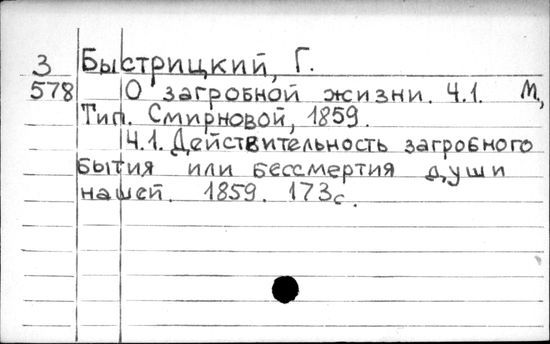 З Быстрицкий, Г.
578 О загробной жизни. Ч.1. М,
Тип. Смирновой, 1859.
Ч.1. Действительность загробного
бытия или бессмертия души
нашей. 1859. 173с.